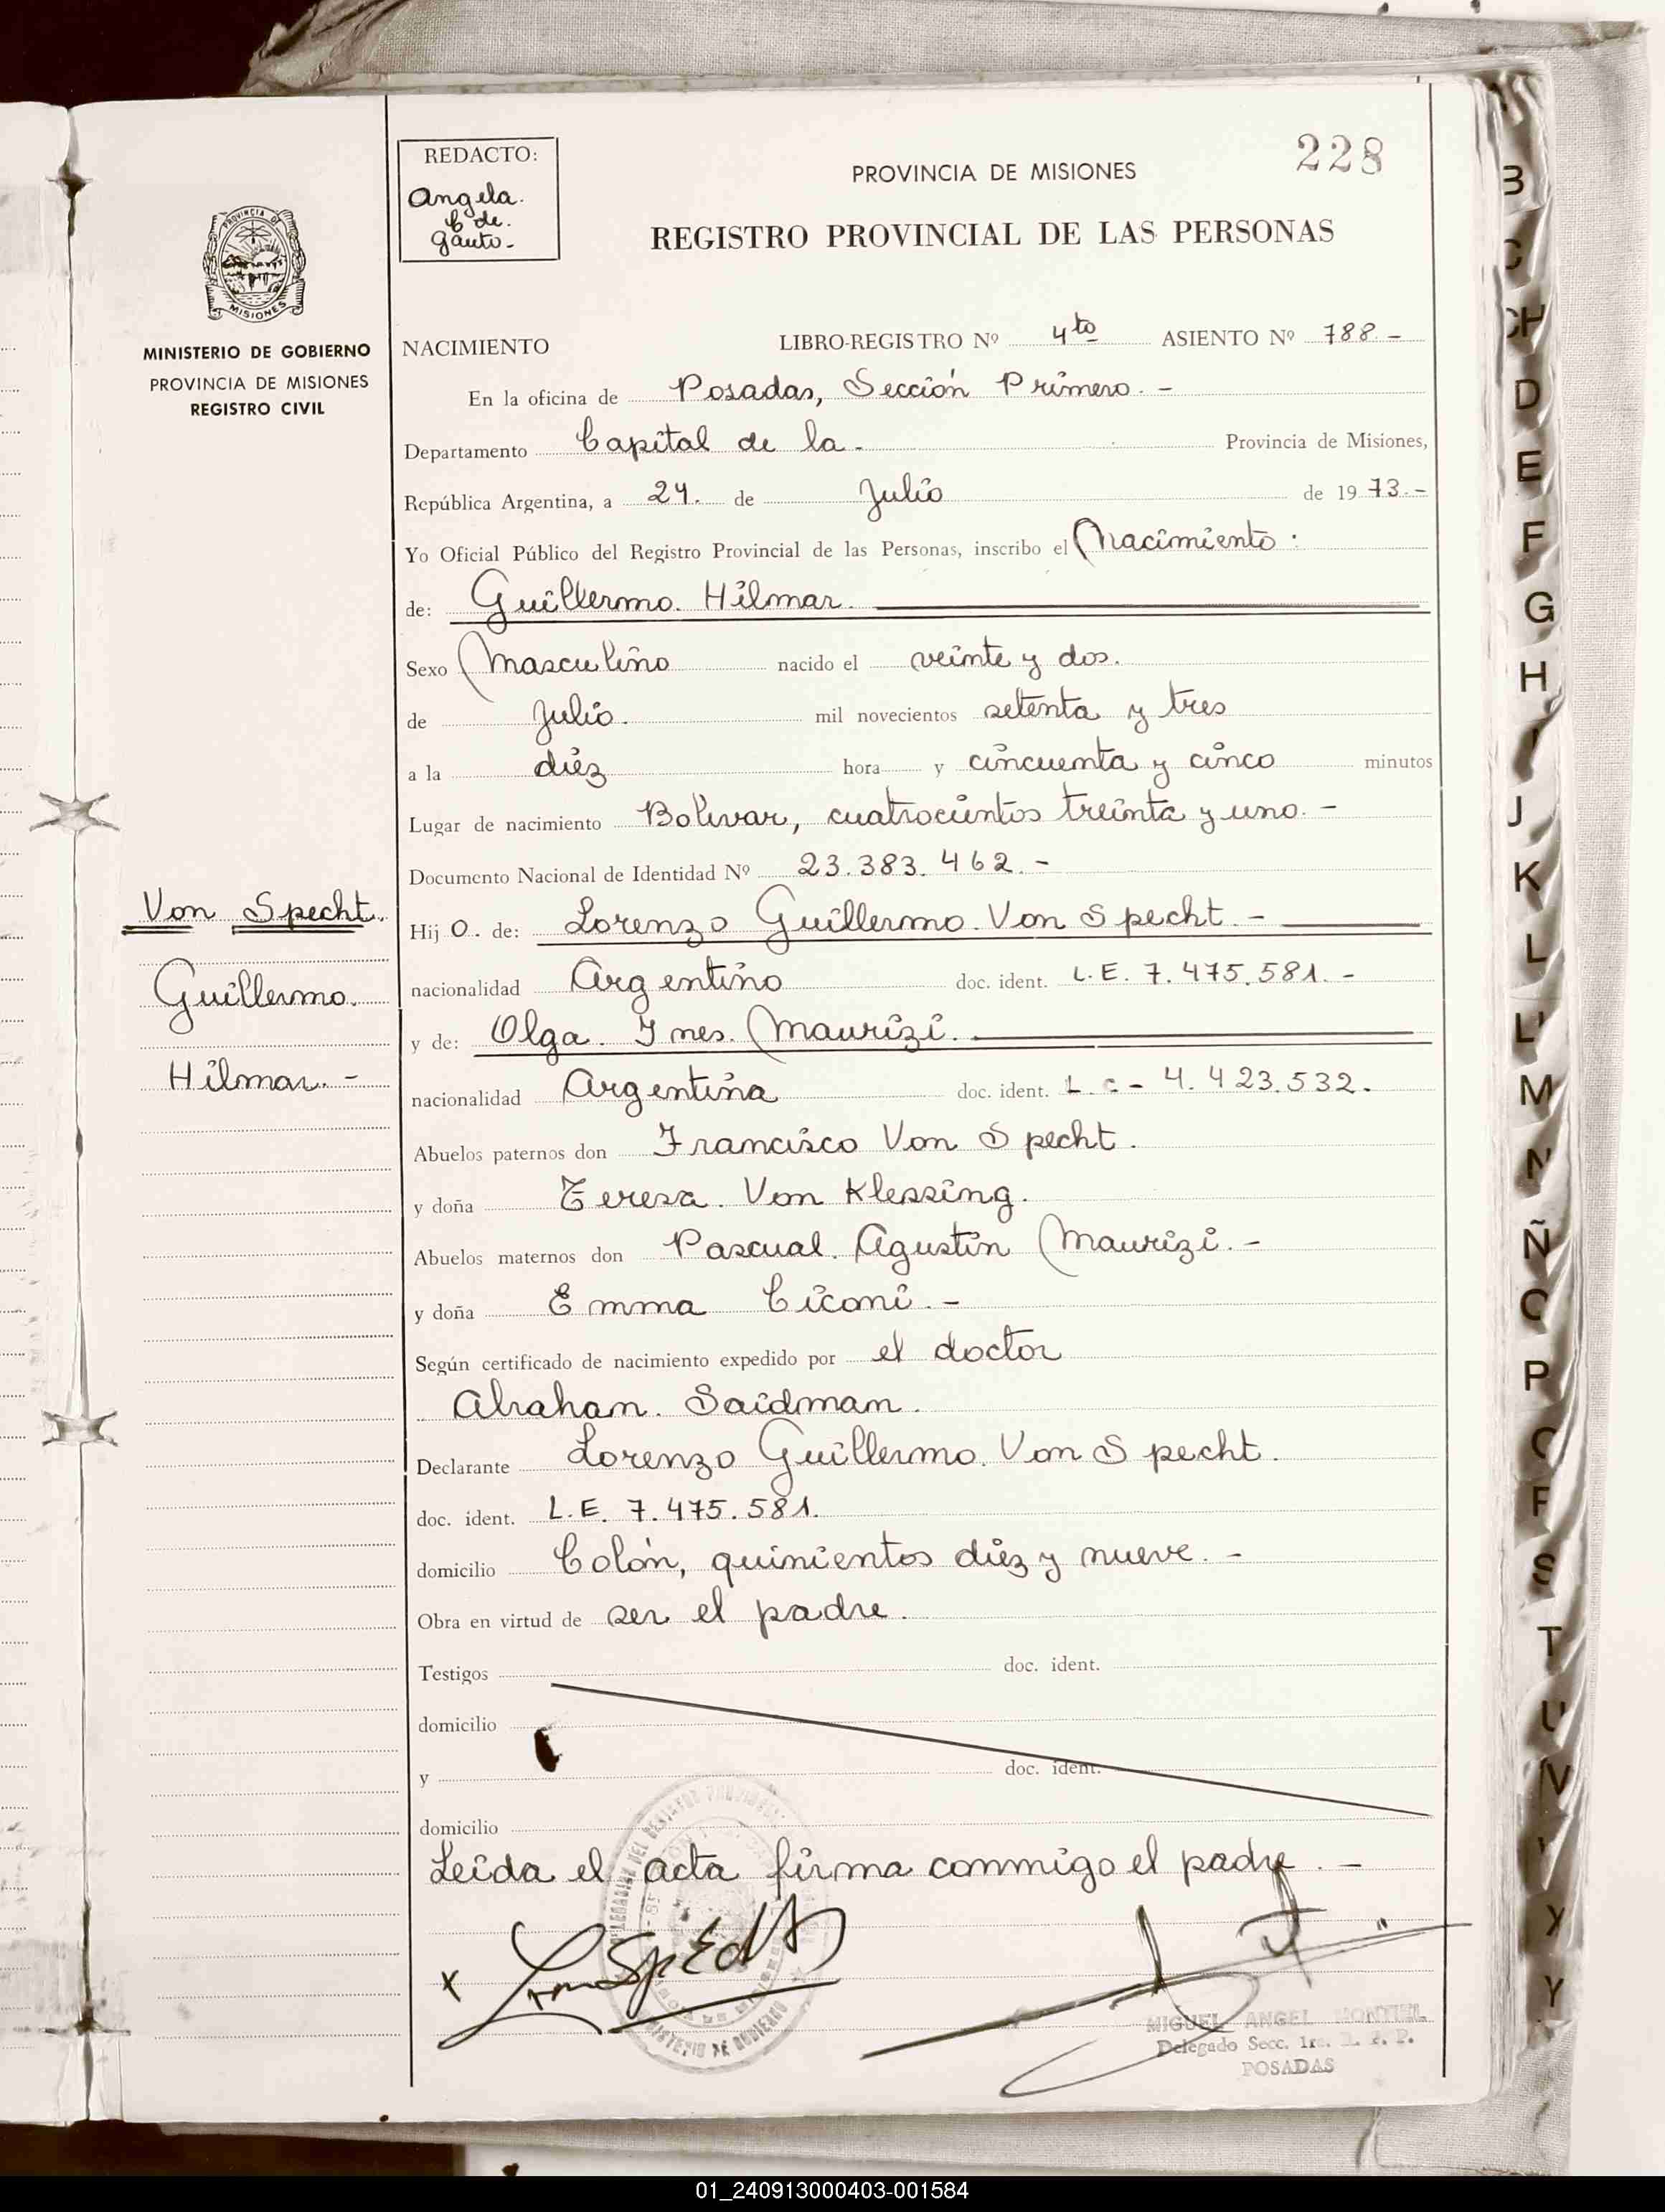 228
REDACTO:
Angela.
C de.
Gauto-
PROVINCIA DE MISIONES
REGISTRO PROVINCIAL DE LAS PERSONAS
PROVINCIA DE
MISIONES
MINISTERIO DE GOBIERNO
PROVINCIA DE MISIONES
REGISTRO CIVIL
NACIMIENTO LIBRO-REGISTRO Nº 4to ASIENTO Nº 788.-
En la oficina de Posadas, Sección Primero.-
Departamento Capital de la- Provincia de Misiones,
República Argentina, a 24. de Julio de 1973.-
Yo Oficial Público del Registro Provincial de las Personas, inscribo el Nacimiento:
de: Guillermo. Hilmar.
Sexo Masculino nacido el veinte y dos.
de Julio. mil novecientos setenta y tres
a la diez hora y cincuenta y cinco minutos
Lugar de nacimiento Bolivar, cuatrocientos treinta y uno.-
Documento Nacional de Identidad Nº 23.383.462.-
Hijo. de: Lorenzo Guillermo. Von Specht.-
nacionalidad Argentino doc. ident. L.E. 7.475.581.-
y de: Olga. Ines. Maurizi.
nacionalidad Argentina doc. ident. L.C- 4.423.532.
Abuelos paternos don Francisco Von Specht.
y doña Teresa. Von Klessing.
Abuelos maternos don Pascual. Agustin Maurizi.-
y doña Emma Ciconi.-
Según certificado de nacimiento expedido por el doctor
Abraham. Saidman.
Declarante Lorenzo Guillermo. Von Specht.
doc. ident. L.E. 7.475.581.
domicilio Colón, quinientos diez y nueve.-
Obra en virtud de ser el padre.
Testigos doc. ident.
domicilio
y doc. ident.
domicilio
Leida el acta firma conmigo el padre.-
Von Specht.
Guillermo.
Hilmar.-
X
MINISTERIO DE GOBIERNO
MIGUEL ANGEL MONTIEL
Delegado Secc. 1ra. R. P. P.
POSADAS
B
C
CH
D
E
F
G
H
I
J
K
L
LL
M
N
Ñ
O
P
Q
R
S
T
U
V
X
Y
01_240913000403-001584